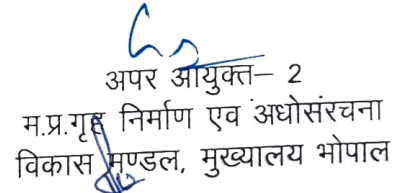 अपर आयुक्त– 2
म.प्र.गृह निर्माण एव अधोसंरचना
विकास मण्डल, मुख्यालय भोपाल